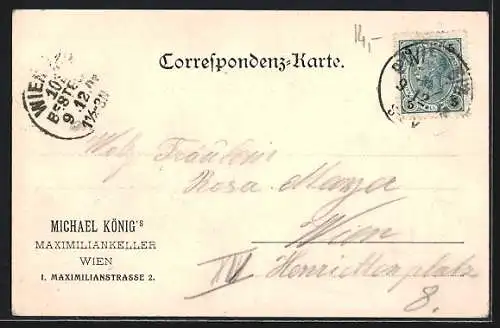 14,-
Correspondenz-Karte.
WIEN
BESTELLT
9.12
5 5
Wohlg. Fräulein
Rosa Mayer
Wien
IV Henriettenplatz
8.
MICHAEL KÖNIG'S
MAXIMILIANKELLER
WIEN
I. MAXIMILIANSTRASSE 2.